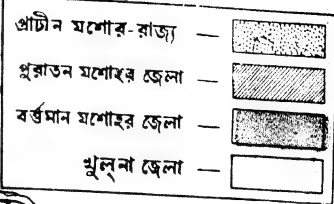 প্রাচীন যশোর-রাজ্য —
পুরাতন যশোহর জেলা —
বর্ত্তমান যশোহর জেলা —
খুল্‌না জেলা —